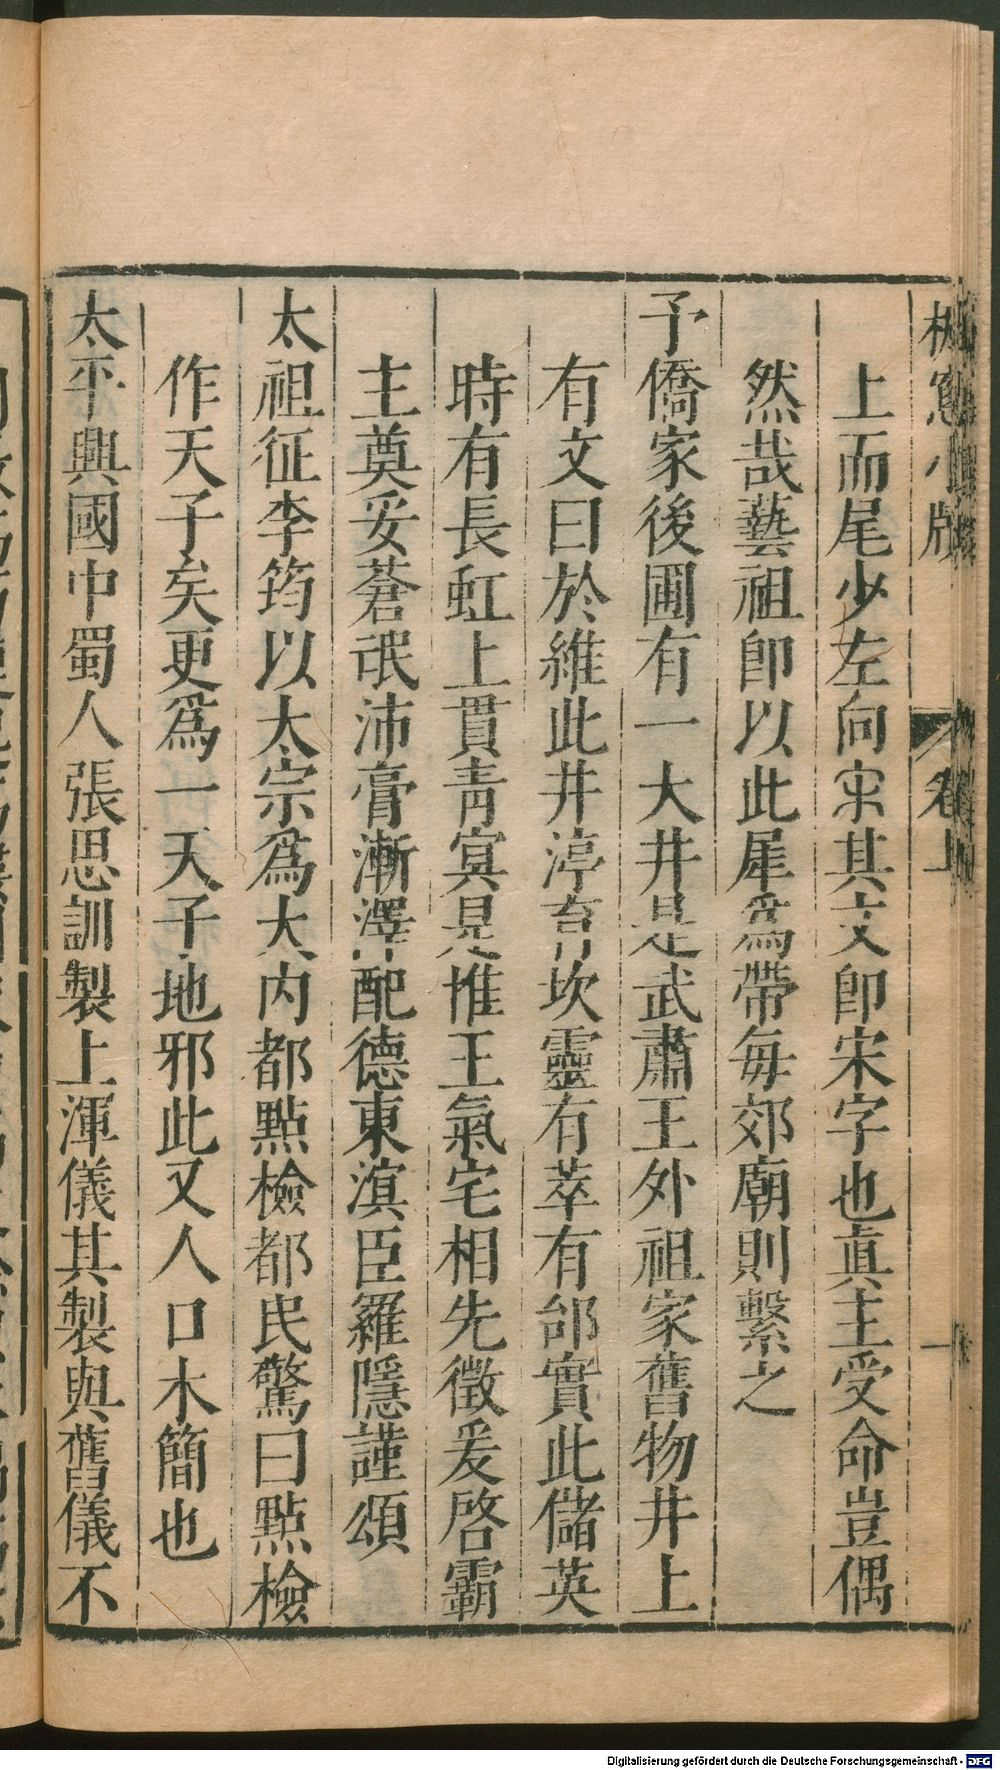 楓窻小牘 卷上 一
上而尾少左向宋其文卽宋字也眞主受命豈偶
然哉藝祖卽以此犀爲帶每郊廟則繫之
予僑家後圃有一大井是武肅王外祖家舊物井上
有文曰於維此井渟育坎靈有莘有邰實此儲英
時有長虹上貫靑冥是惟王氣宅相先徵爰啓霸
主奠妥蒼氓沛膏漸澤配德東溟臣羅隱謹頌
太祖征李筠以太宗爲大内都點檢都民驚曰點檢
作天子矣更爲一天子地邪此又人口木簡也
太平興國中蜀人張思訓製上渾儀其製與舊儀不
Digitalisierung gefördert durch die Deutsche Forschungsgemeinschaft - DFG